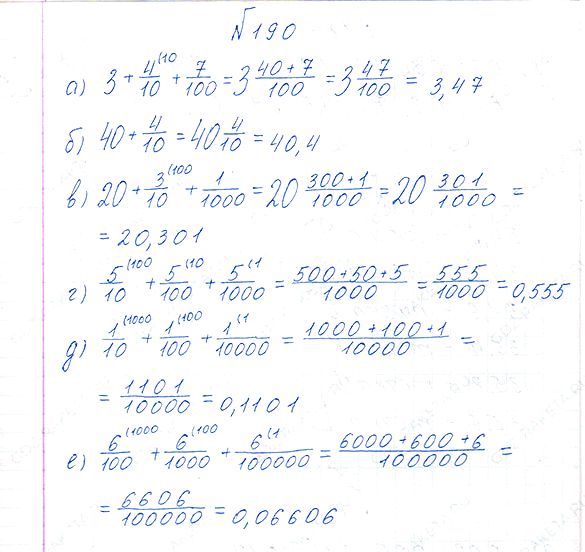 №190
а) 3 + 4/10 (10 + 7/100 = 3 40+7/100 = 3 47/100 = 3,47
б) 40 + 4/10 = 40 4/10 = 40,4
в) 20 + 3/10 (100 + 1/1000 = 20 300+1/1000 = 20 301/1000 =
= 20,301
г) 5/10 (100 + 5/100 (10 + 5/1000 (1 = 500+50+5/1000 = 555/1000 = 0,555
д) 1/10 (1000 + 1/100 (100 + 1/10000 (1 = 1000+100+1/10000 =
= 1101/10000 = 0,1101
е) 6/100 (1000 + 6/1000 (100 + 6/100000 (1 = 6000+600+6/100000 =
= 6606/100000 = 0,06606